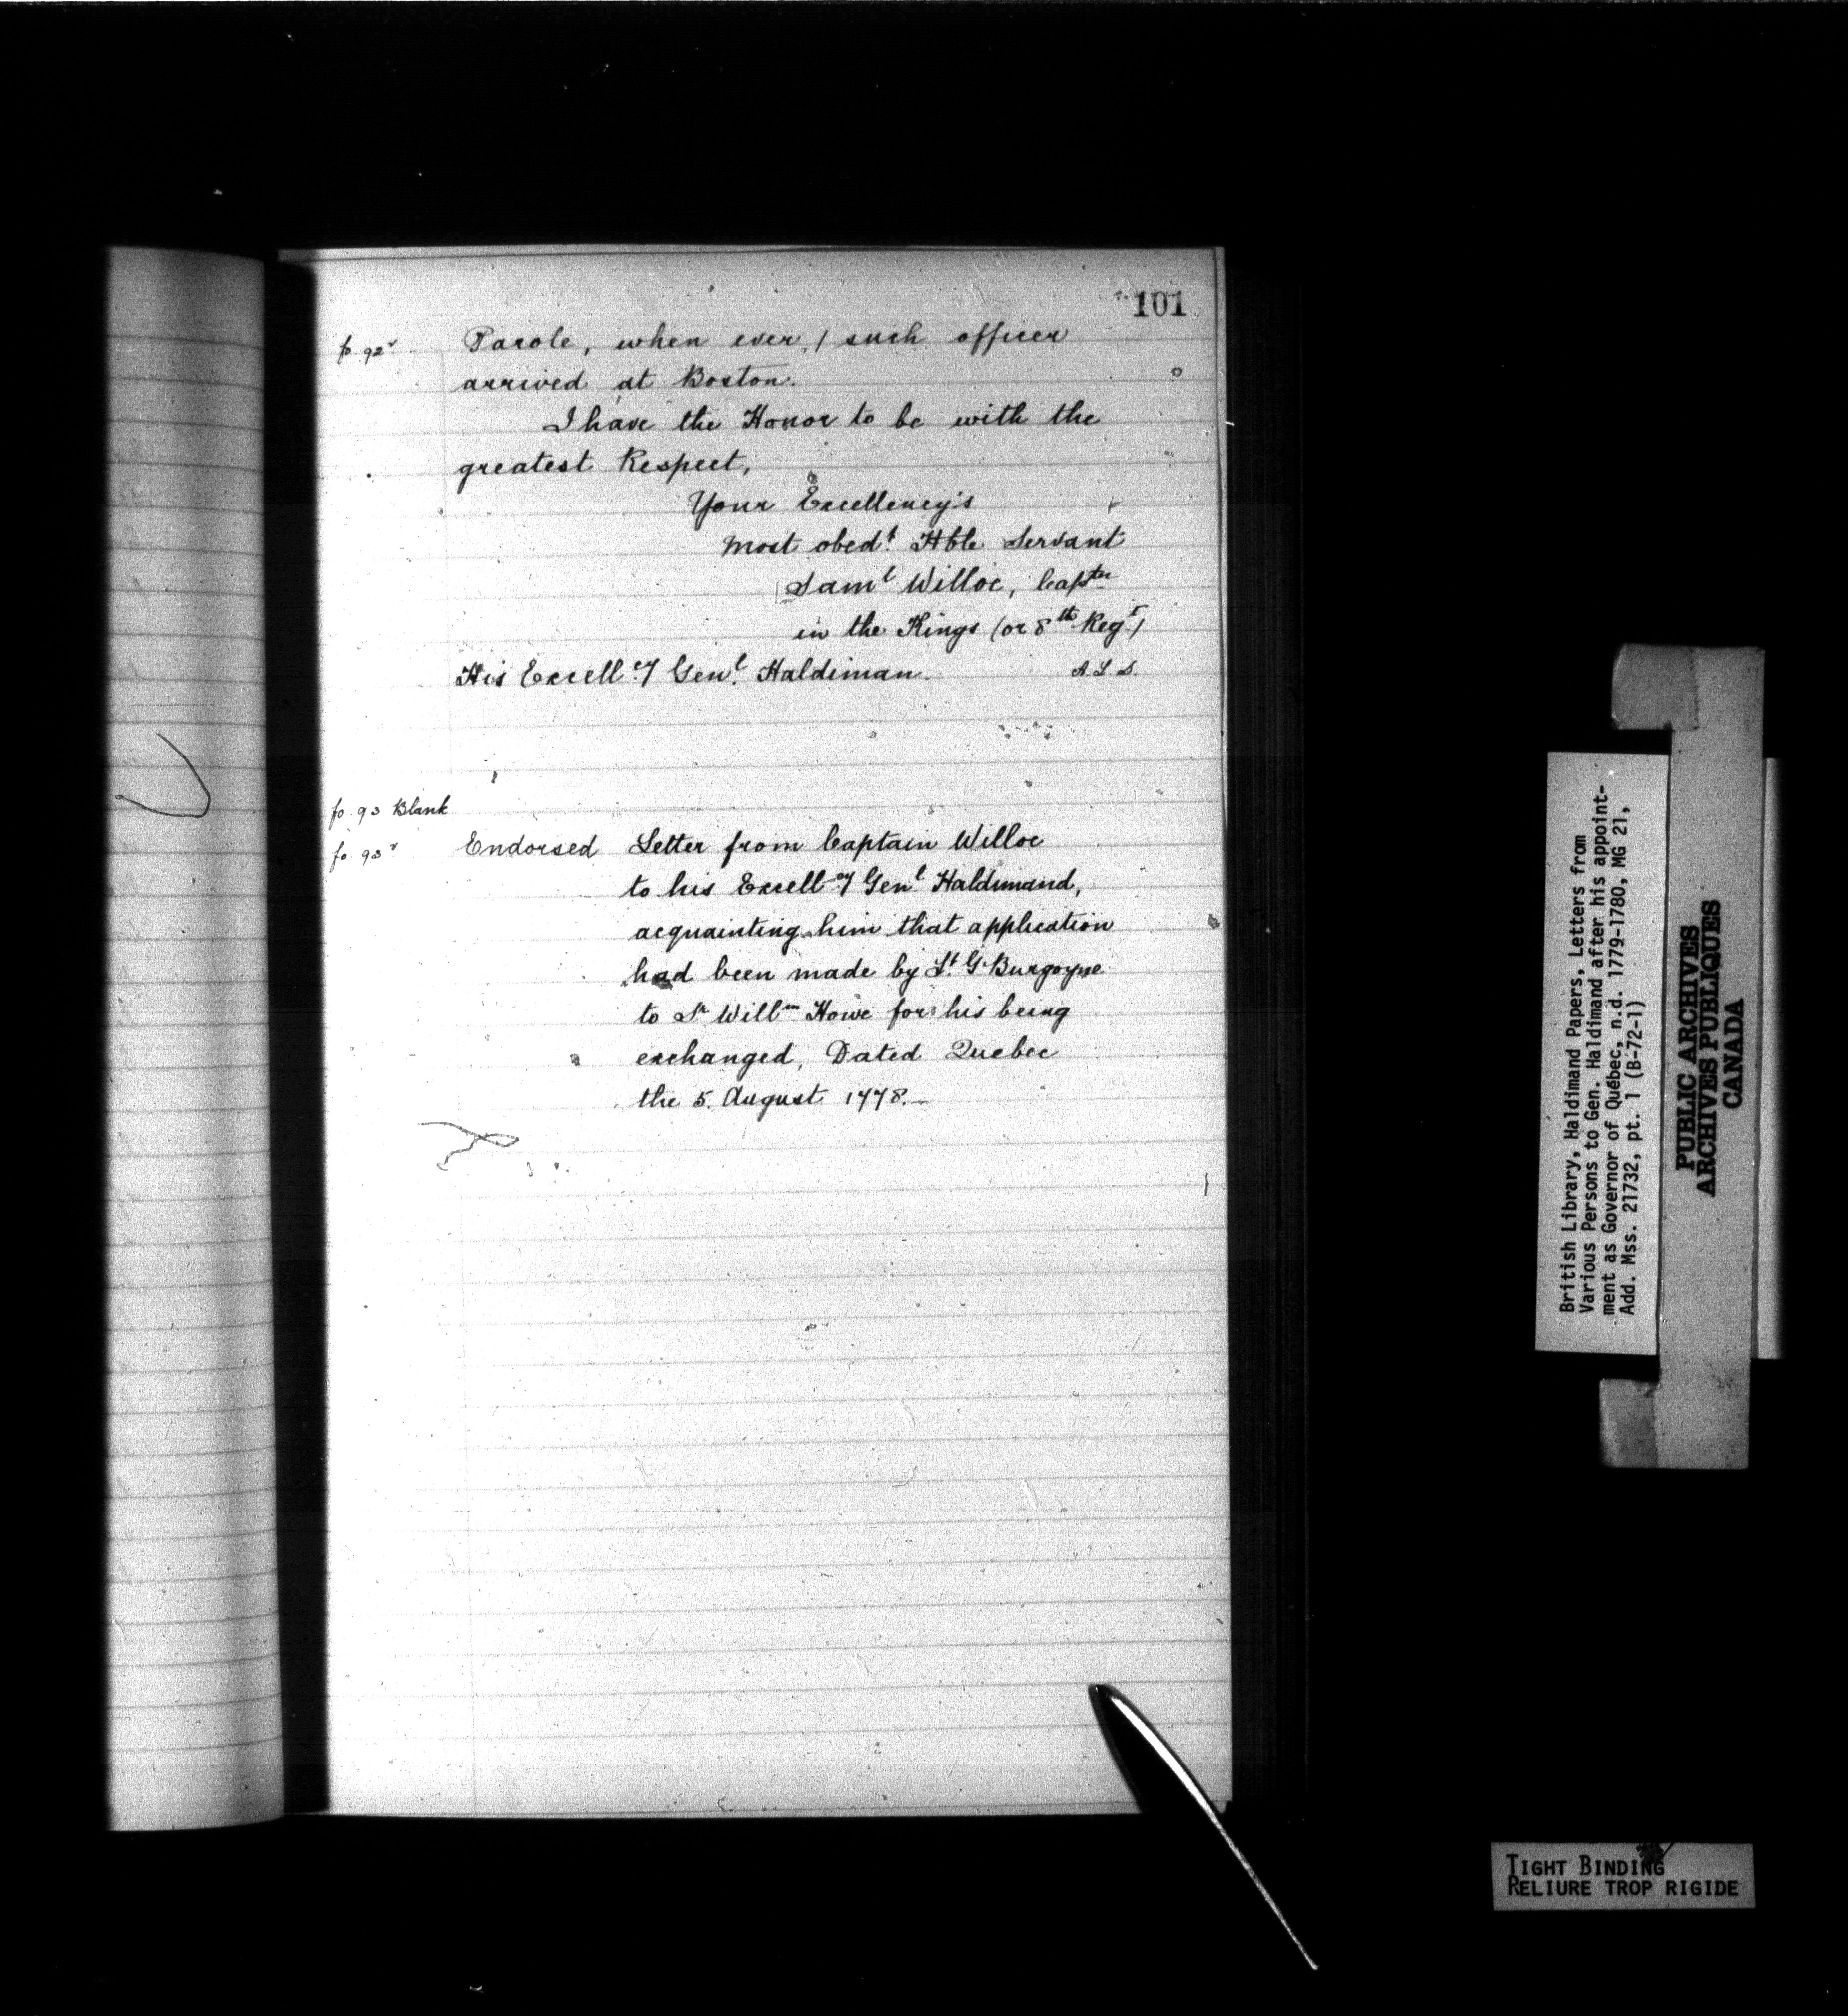 101
fo. 92v Parole, when ever / such officer
arrived at Boston.
I have the Honor to be with the
greatest Respect,
Your Excellency's
Most obedt Hble Servant
Saml Willoe, Captn
in the Kings (or 8th Regt)
His Excellcy Genl Haldiman. A.L.S.
fo. 93 Blank
fo. 93v Endorsed Letter from Captain Willoe
to his Excellcy Genl Haldimand,
acquainting him that application
had been made by Lt G Burgoyne
to Sr Willm Howe for his being
exchanged, Dated Quebec
the 5. August 1778.
British Library, Haldimand Papers, Letters from
Various Persons to Gen. Haldimand after his appoint-
ment as Governor of Québec, n.d. 1779-1780, MG 21,
Add. Mss. 21732, pt. 1 (B-72-1)
PUBLIC ARCHIVES
ARCHIVES PUBLIQUES
CANADA
TIGHT BINDING
RELIURE TROP RIGIDE